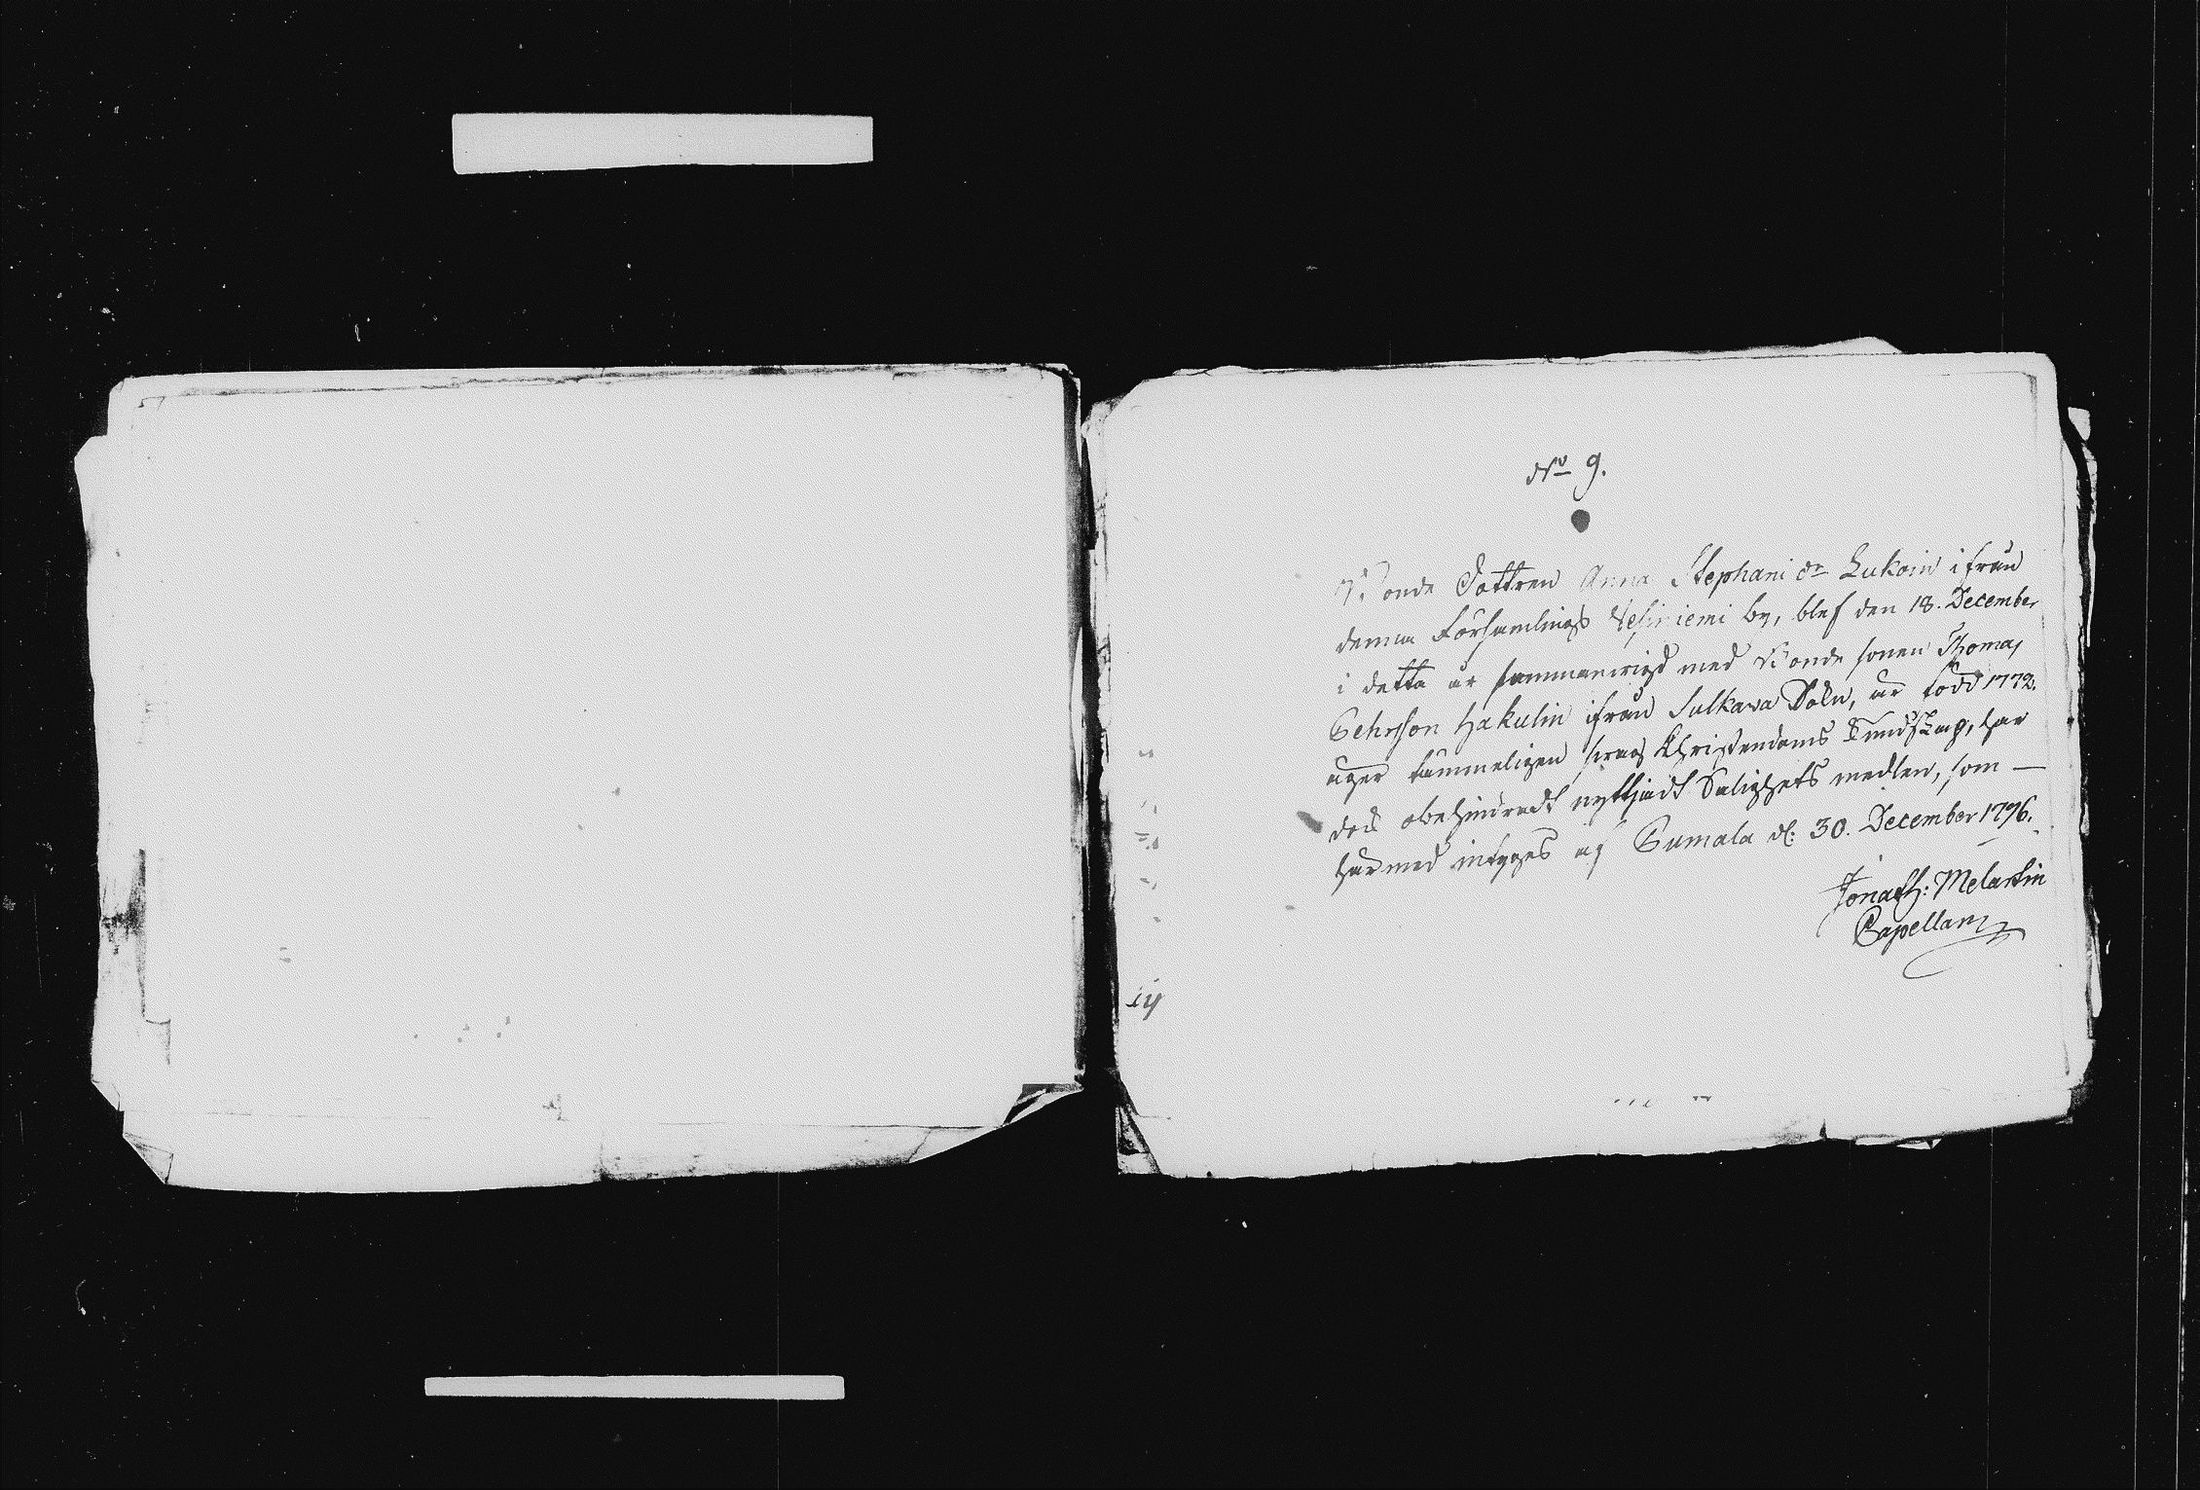 No 9.
Bonde Dottren Anna Stephani dr Lukoin ifrån
denna Församlings by, blef den 18. December
i detta år sammanwigd med Bonde sonen Thomas
Pehrsson Hakulin ifrån Sulkawa Sokn, är född 1772.
äger tämmeligen Christendoms Kundskap, har
ock obehindradt nyttjadt Salighets medlen, som —
härmed intygas af Sumala d: 30. December 1796.
Jonath: Melartin
Capellan